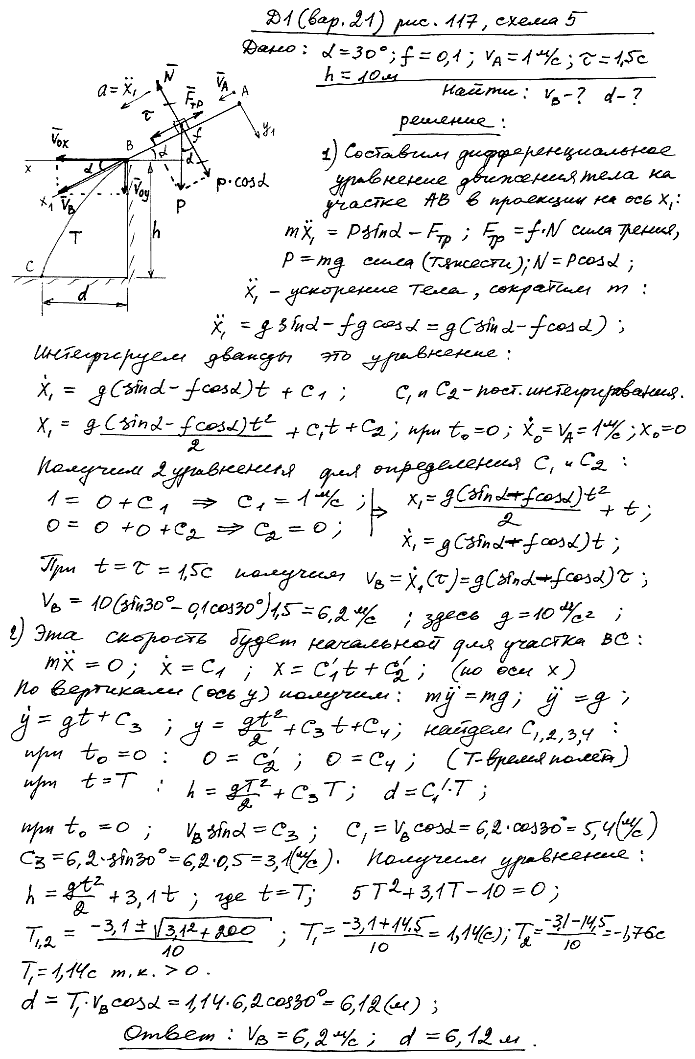 D1 (вар. 21) рис. 117, схема 5
Дано: α=30°; f=0,1; v_A=1 м/с; τ=1,5с
h=10м
Найти: v_B-? d-?
решение:
N̄
a=ẍ₁
τ
F̄тр
v̄_A
A
f
y₁
v̄ox
B
x
α
α
α
x₁
v̄_B
v̄oy
p·cosα
P
T
h
C
d
1) Составим дифференциальное
уравнение движения тела на
участке AB в проекции на ось x₁:
mẍ₁ = Psinα - Fтр; Fтр = f·N сила трения,
P=mg сила (тяжести); N=Pcosα;
ẍ₁ - ускорение тела, сократим m:
ẍ₁ = g sinα - fg cosα = g(sinα - fcosα);
Интегрируем дважды это уравнение:
ẋ₁ = g(sinα - fcosα)t + C₁; C₁ и C₂ - пост. интегрирования.
x₁ = g(sinα - fcosα)t²/2 + C₁t + C₂; при t₀=0; ẋ₀=v_A=1м/с; x₀=0
Получим 2 уравнения для определения C₁ и C₂:
1 = 0 + C₁ ⇒ C₁ = 1м/с; ⇒ x₁ = g(sinα-fcosα)t²/2 + t;
0 = 0 + 0 + C₂ ⇒ C₂ = 0; ẋ₁ = g(sinα-fcosα)t;
При t=τ=1,5с получим v_B = ẋ₁(τ) = g(sinα-fcosα)τ;
v_B = 10(sin30°-0,1cos30°)1,5 = 6,2м/с; здесь g=10м/с²;
2) Эта скорость будет начальной для участка BC:
mẍ = 0; ẋ = C₁; x = C₁′t + C₂′; (по оси x)
По вертикали (ось y) получим: mÿ = mg; ÿ = g;
ẏ = gt + C₃; y = gt²/2 + C₃t + C₄; найдем C₁,₂,₃,₄:
при t₀=0: 0 = C₂′; 0 = C₄; (T-время полета)
при t=T: h = gT²/2 + C₃T; d = C₁′·T;
при t₀=0; v_B sinα = C₃; C₁ = v_B cosα = 6,2·cos30° = 5,4(м/с)
C₃ = 6,2·sin30° = 6,2·0,5 = 3,1(м/с). Получим уравнение:
h = gt²/2 + 3,1t; где t=T; 5T²+3,1T-10=0;
T₁,₂ = (-3,1±√(3,1²+200))/10; T₁ = (-3,1+14,5)/10 = 1,14(с); T₂ = (-3,1-14,5)/10 = -1,76с
T₁ = 1,14с т.к. > 0.
d = T₁·v_B cosα = 1,14·6,2cos30° = 6,12(м);
Ответ: v_B = 6,2м/с; d = 6,12м.